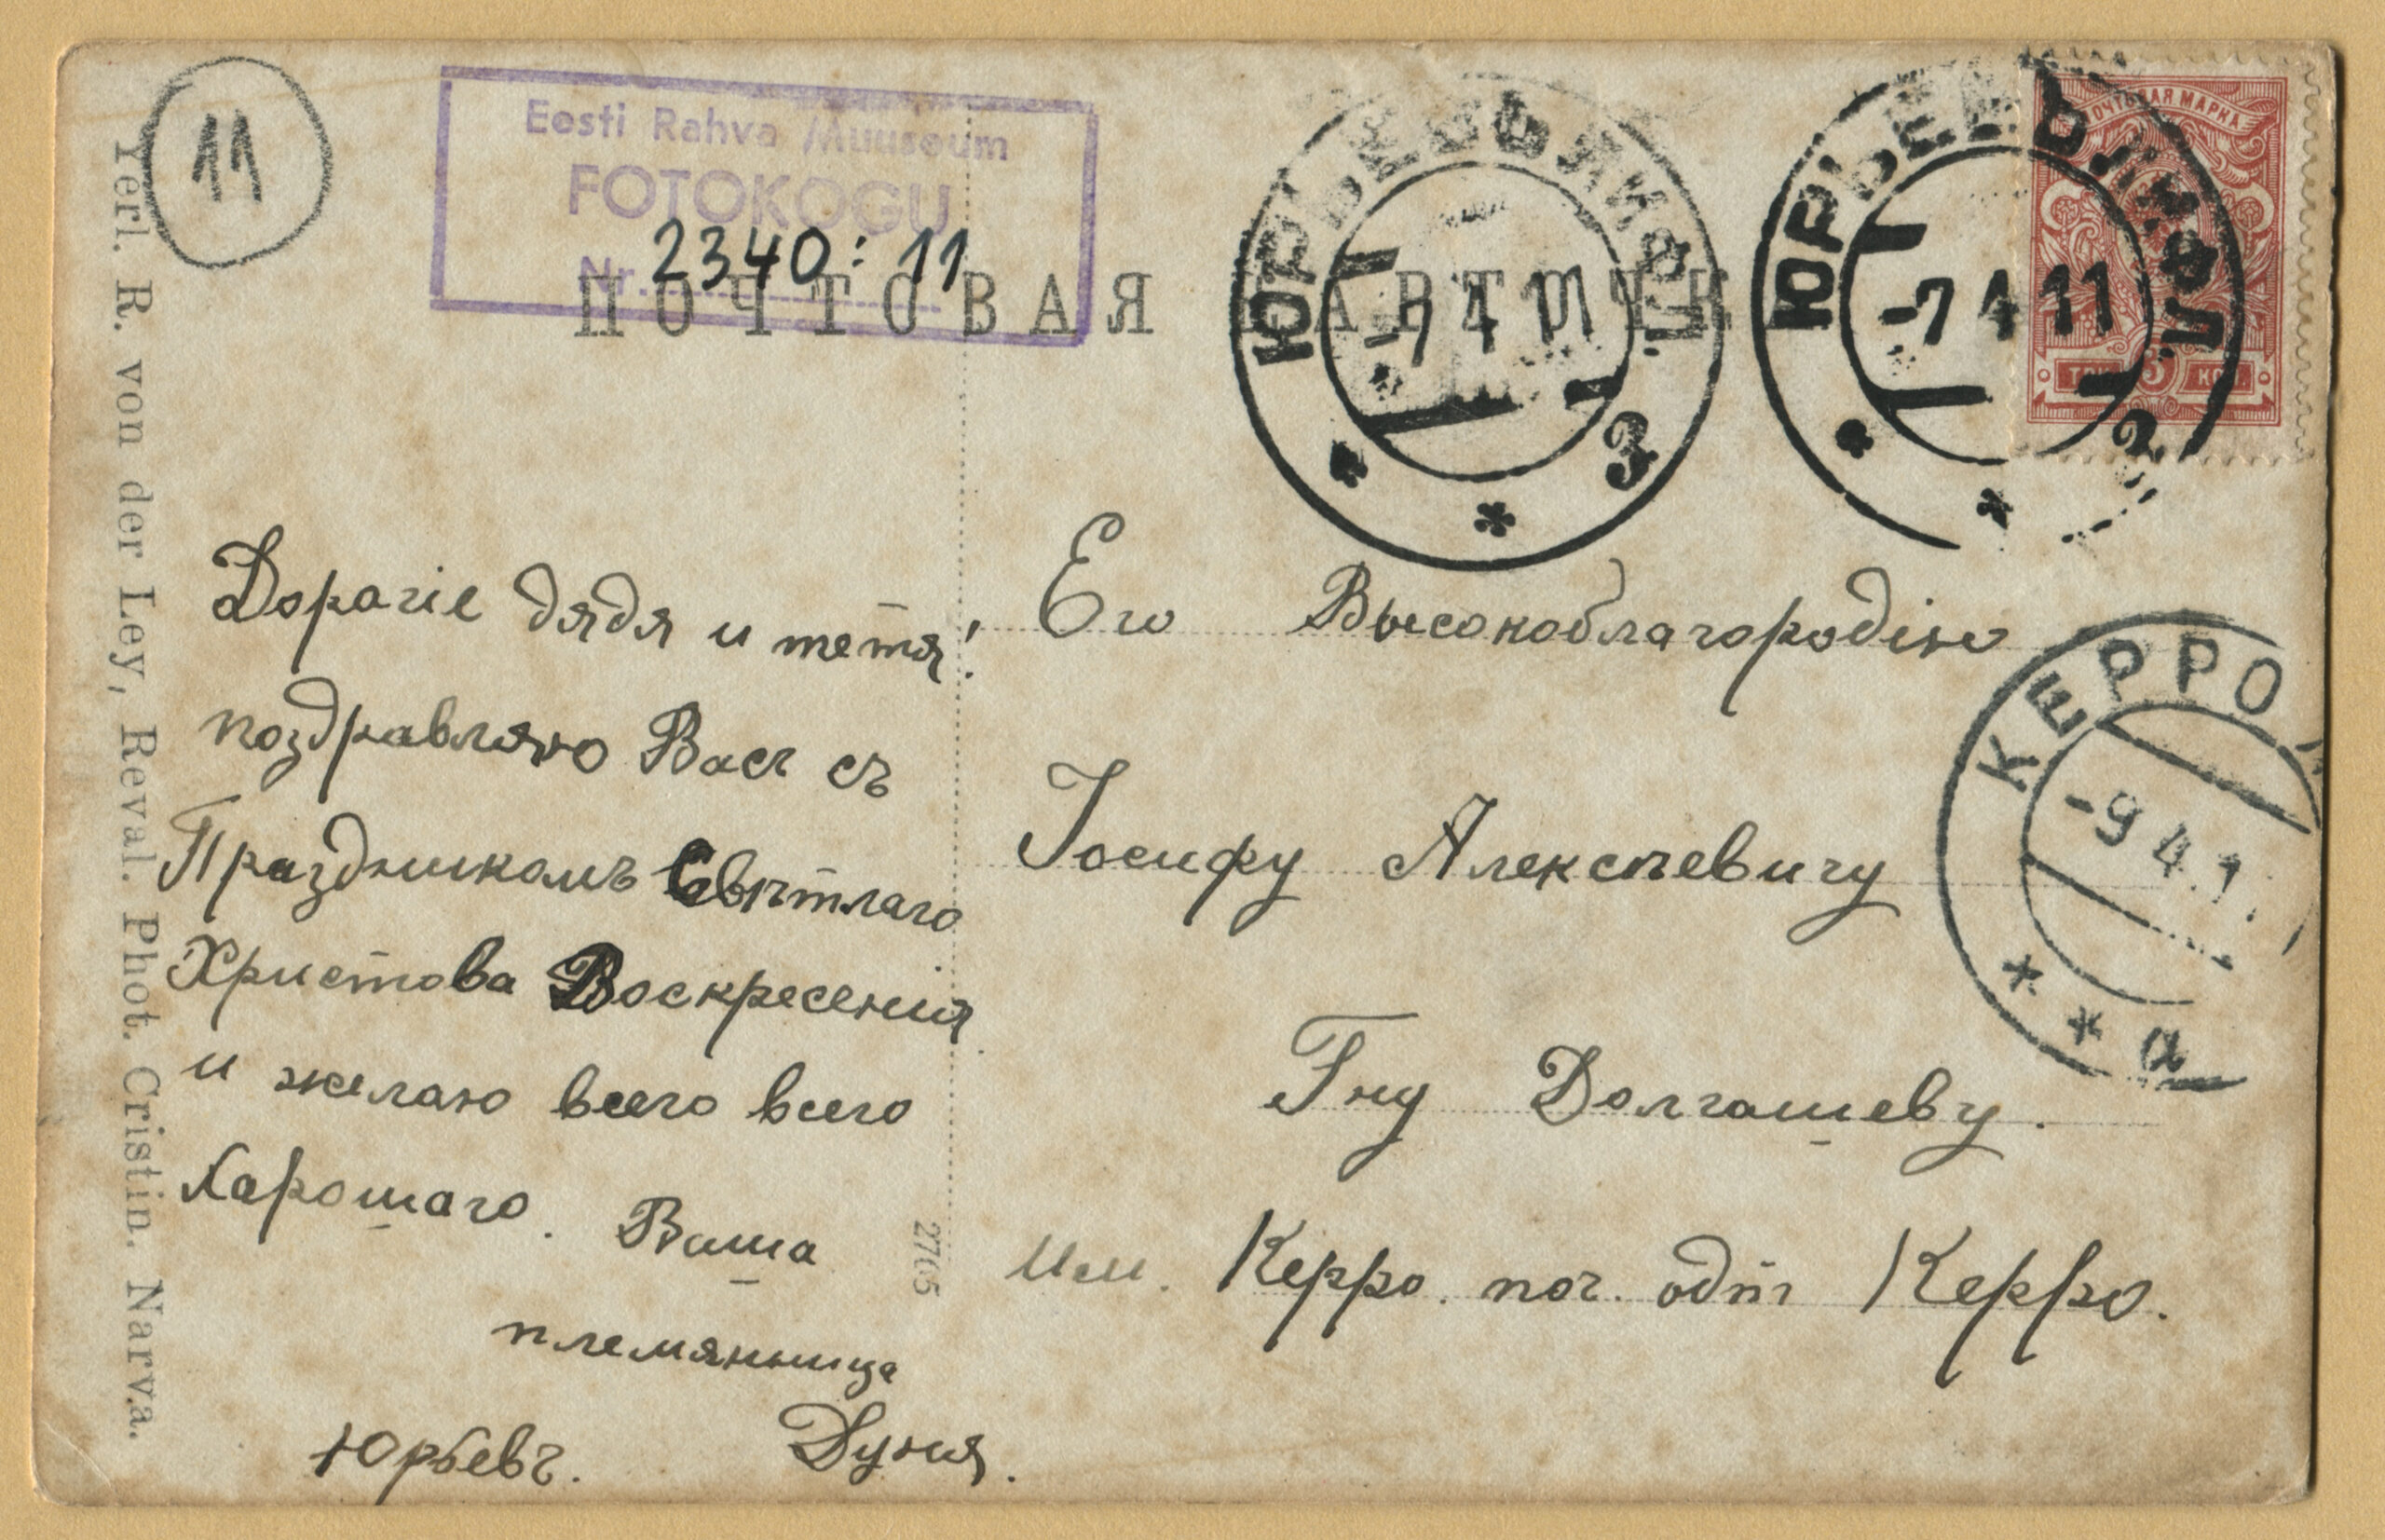 11
Eesti Rahva Muuseum
FOTOKOGU
Nr. 2340:11
ПОЧТОВАЯ КАРТОЧКА
ЮРЬЕВЪ ЛИФЛ.
-7 4 11
3
ЮРЬЕВЪ ЛИФЛ.
-7 4 11
ПОЧТОВАЯ МАРКА
ТРИ 3 КОП.
КЕРРО
-9 4.1
а
Дорагіе дядя и тетя!
поздравляю Васъ съ
Праздникомъ Свѣтлаго
Христова Воскресенія
и желаю всего всего
Харошаго. Ваша
племянница
Дуня.
Юрьевъ.
Его Высокоблагородію
Іосифу Алексѣевичу
Гну Долгашеву.
Им. Керро. поч. одт Керро.
2705
Verl. R. von der Ley, Reval. Phot. Cristin. Narva.